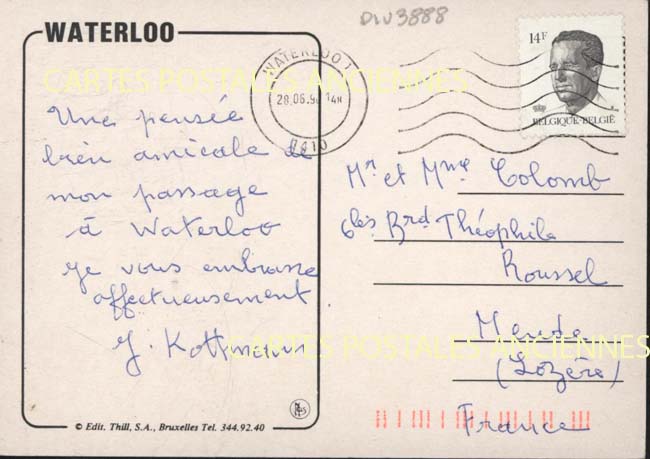 DIV3888
WATERLOO
14F
BELGIQUE-BELGIË
WATERLOO 1
28.06.9 14H
1410
CARTES POSTALES ANCIENNES
Une pensée
bien amicale de
mon passage
à Waterloo
je vous embrasse
affectueusement
Mr et Mme Colomb
6bis Brd Théophile
Roussel
Mende
(Lozère)
France
CARTES POSTALES ANCIENNES
© Edit. Thill, S.A., Bruxelles Tel. 344.92.40